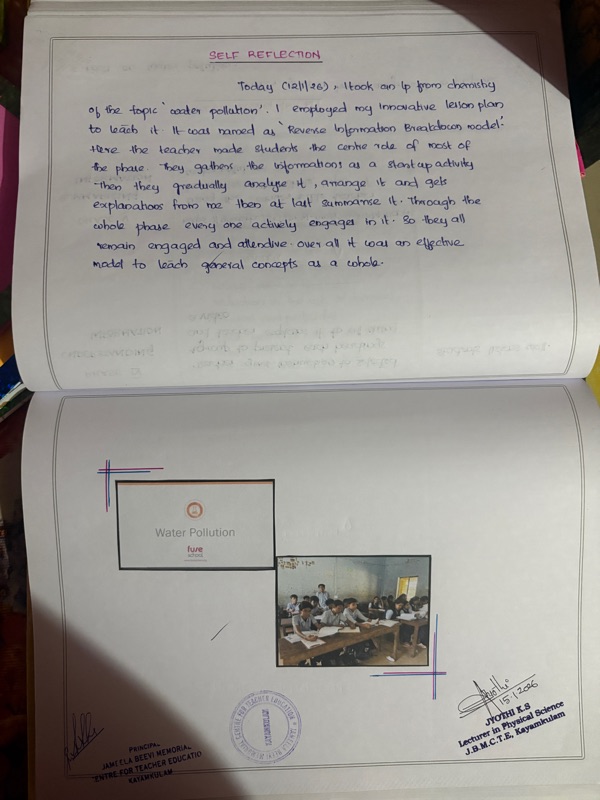 SELF REFLECTION
Today (12/1/26), I took an lp from chemistry
of the topic 'water pollution'. I employed my innovative lesson plan
to teach it. It was named as 'Reverse Information Breakdown model'.
Here the teacher made students the centre role of most of
the phase. They gathers the informations as a start up activity
Then they gradually analyse it, arrange it and gets
explanations from me then at last summarise it. Through the
whole phase every one actively engages in it. So they all
remain engaged and attendive. Over all it was an effective
model to teach general concepts as a whole.
Water Pollution
fuse
school
15.1.2026
JYOTHI K.S
Lecturer in Physical Science
J.B.M.C.T.E, Kayamkulam
PRINCIPAL
JAMEELA BEEVI MEMORIAL
CENTRE FOR TEACHER EDUCATIO
KAYAMKULAM
CENTRE FOR TEACHER EDUCATION
KAYAMKULAM